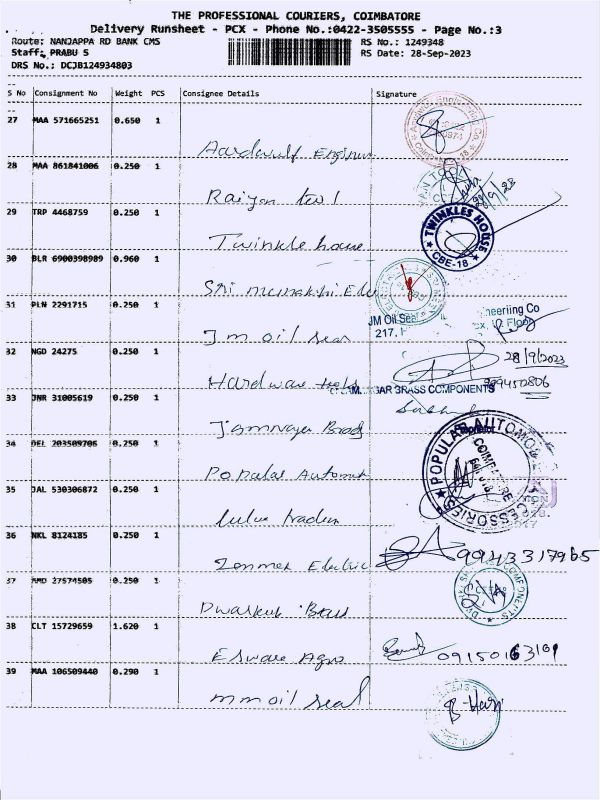 THE PROFESSIONAL COURIERS, COIMBATORE
Delivery Runsheet - PCX - Phone No.:0422-3505555 - Page No.:3
Route: NANJAPPA RD BANK CMS RS No.: 1249348
Staff: PRABU S RS Date: 28-Sep-2023
DRS No.: DCJB124934803
S No Consignment No Weight PCS Consignee Details Signature
27 MAA 571665251 0.650 1
Aardwulf Engineer
28 MAA 861841006 0.250 1
Raiyan tool
29 TRP 4468759 0.250 1
TWINKLES HOUSE
CBE-18
Twinkle house
30 BLR 6900398989 0.960 1
Sri minakshi Ele
31 PLN 2291715 0.250 1
JM Oil Seal
217,
neeriing Co
Floor
Jm oil seal
32 NGD 24275 0.250 1
28/9/2023
Hardware
BRASS COMPONENTS
33 JNR 31005619 0.250 1
Jamnagar Brass
34 DEL 203509706 0.250 1
POPULAR AUTOMO
ACCESSORIES
COIMBATORE
Popular Automot
35 JAL 530306872 0.250 1
lulu traders
36 NKL 8124185 0.250 1
Electric
9943317965
37 AMD 27574505 0.250 1
COMPONENTS
Brass
38 CLT 15729659 1.620 1
Eswari Agro
09150163101
39 MAA 106509440 0.290 1
mm oil seal
Hari